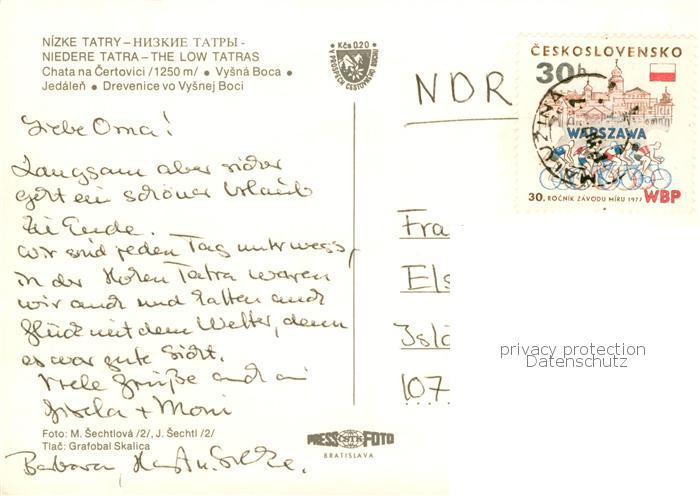 NÍZKE TATRY – НИЗКИЕ ТАТРЫ -
NIEDERE TATRA – THE LOW TATRAS
Chata na Čertovici /1250 m/ • Vyšná Boca •
Jedáleň • Drevenice vo Vyšnej Boci
Kčs 0,20
ČESKOSLOVENSKO
30h
WARSZAWA
30. ROČNÍK ZÁVODU MÍRU 1977 WBP
MALUŽINÁ
NDR
Liebe Oma!
Langsam aber sicher
geht ein schöner Urlaub
zu Ende.
Wir sind jeden Tag unterwegs,
in der Hohen Tatra waren
wir auch und hatten auch
Glück mit dem Wetter, denn
es war gute Sicht.
Viele Grüße auch an
Gisela + Moni
Barbara,
Fra
Els
Isla
107
privacy protection
Datenschutz
Foto: M. Šechtlová /2/, J. Šechtl /2/
Tlač: Grafobal Skalica
PRESS ČSTK FOTO
BRATISLAVA